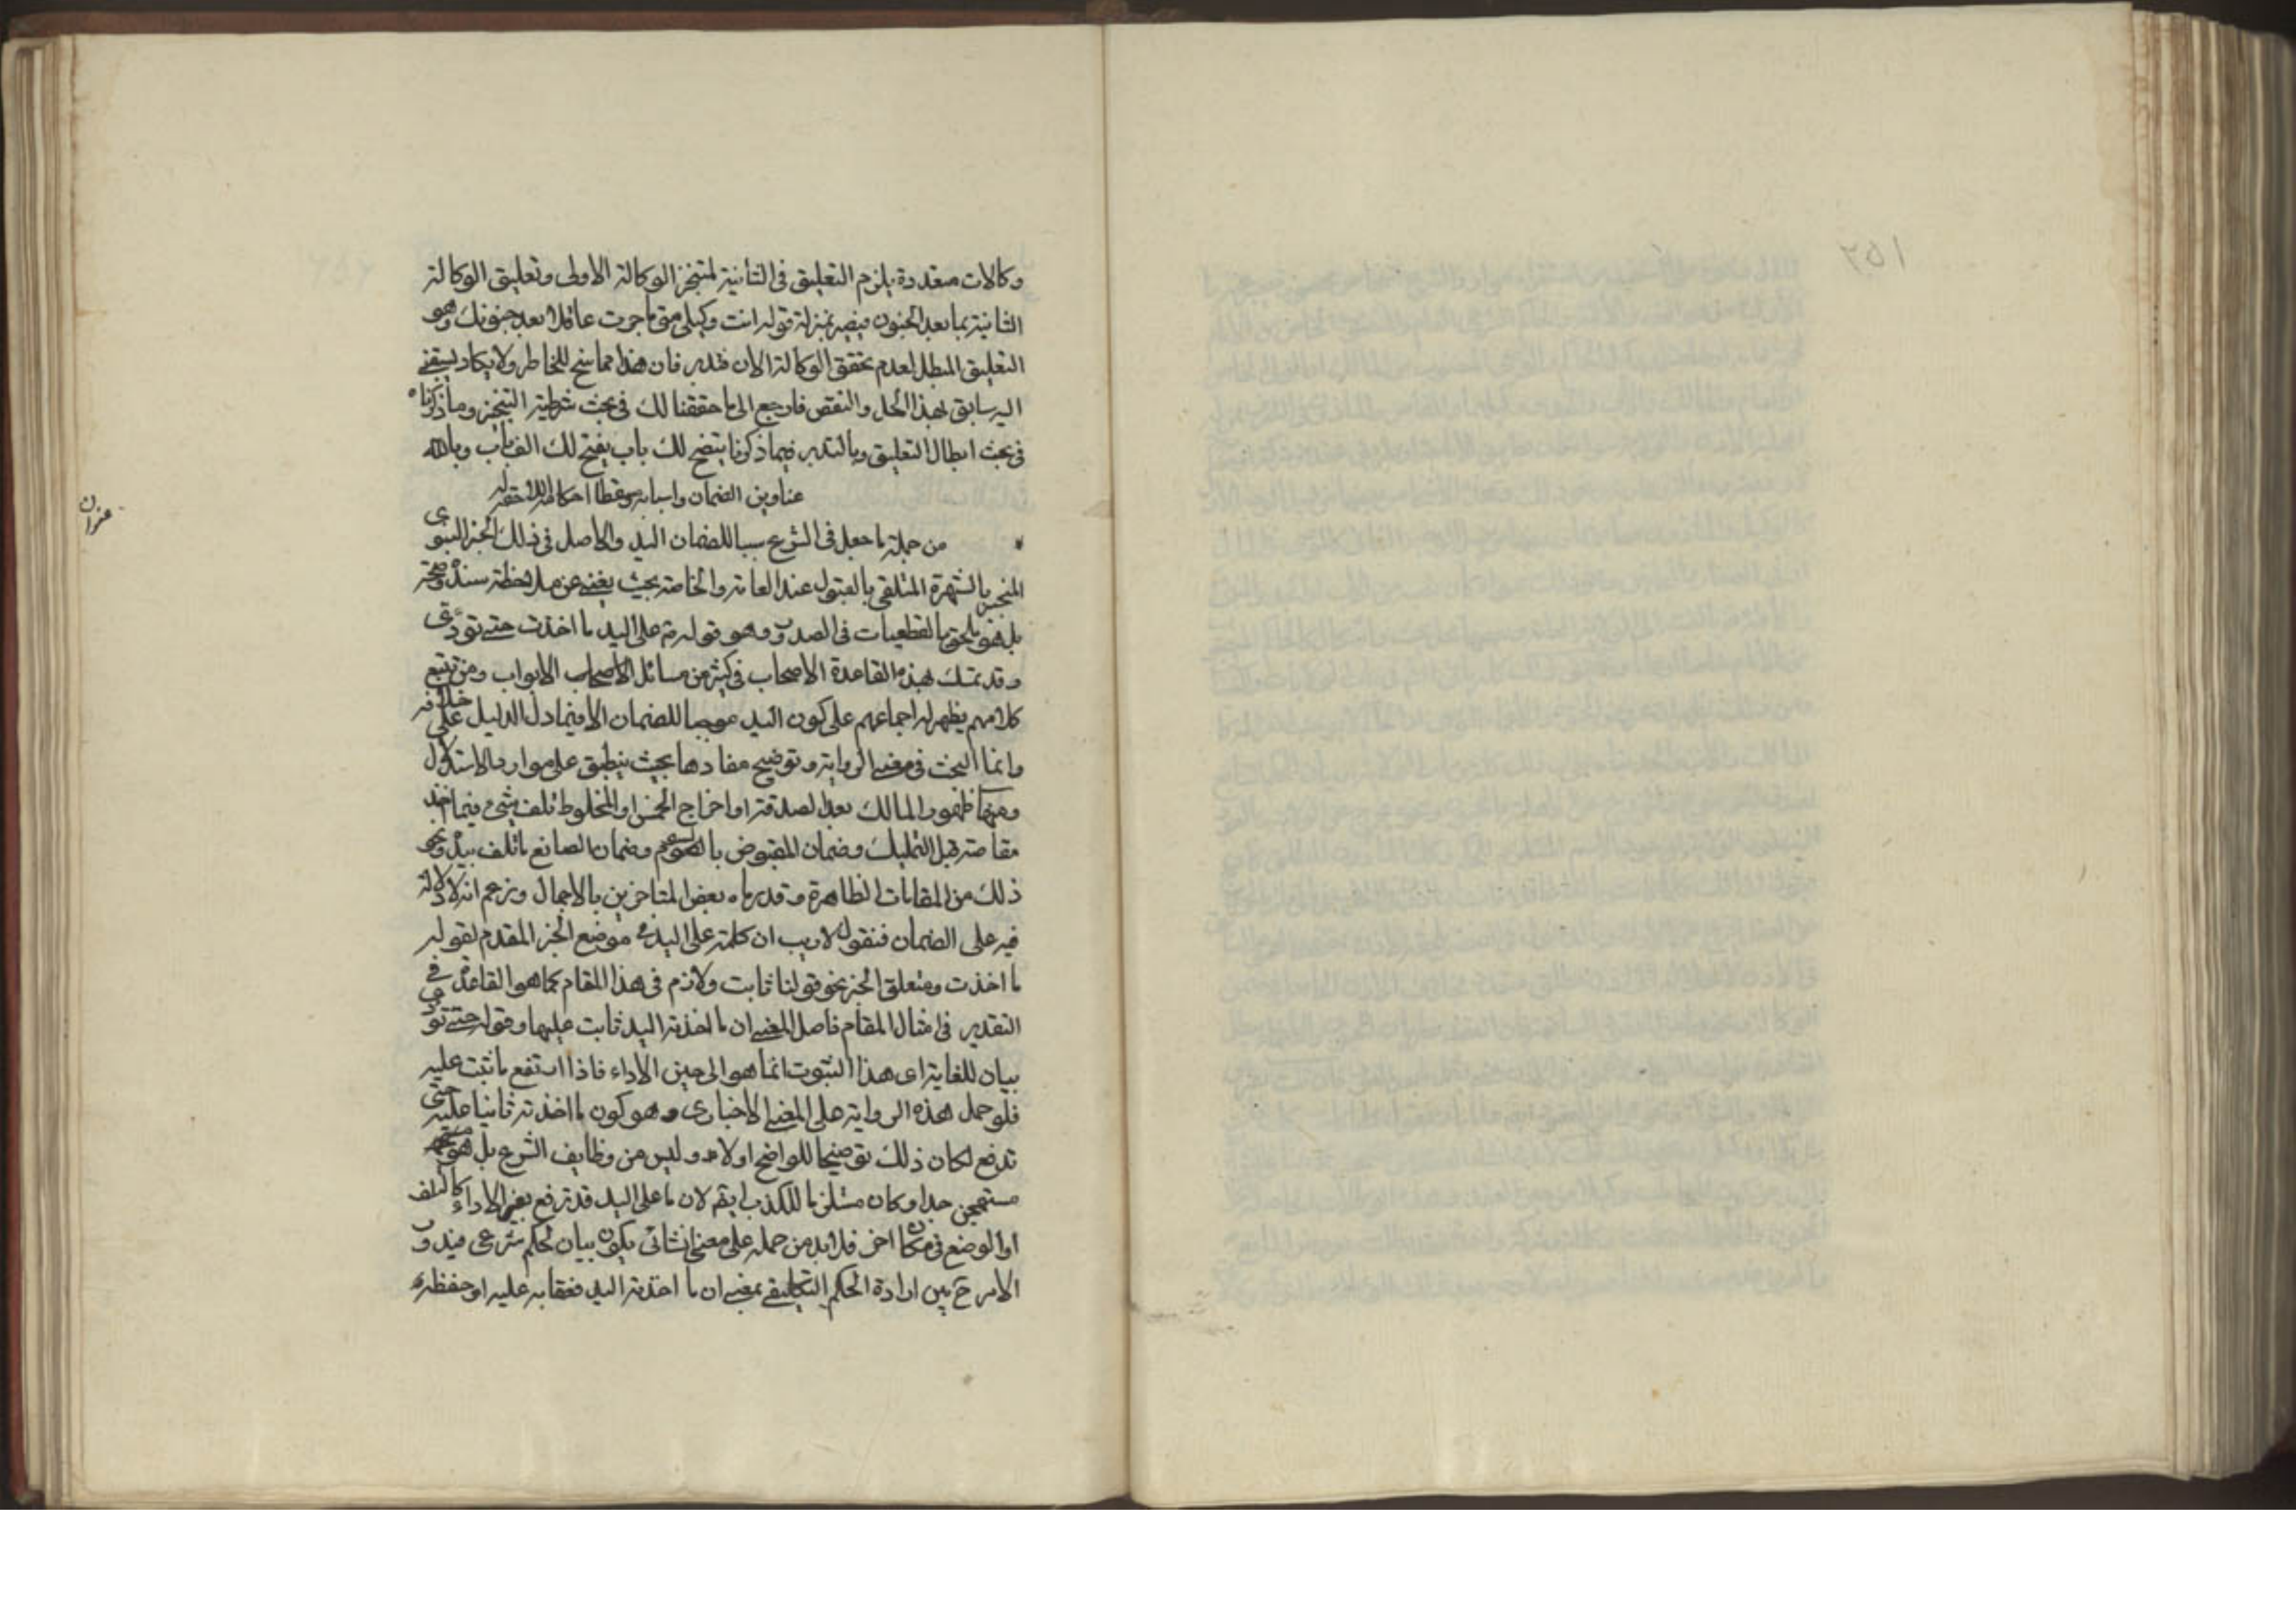 وكالات متعددة يلزم التعليق فى الثانية لتنجز الوكالة الاولى وتعليق الوكالة
الثانية بما بعد الجنون فيصير بمنزلة قوله انت وكيلى متى ما صرت عاقلا بعد جنونك وهو
التعليق المبطل لعدم تحقق الوكالة الان فتدبر فان هذا مما سنح للخاطر ولا يكاد يسبقنى
اليه سابق بهذا الحل والنقض فارجع الى ما حققنا لك فى بحث شرطية التنجيز وما ذكرناه
فى بحث ابطال التعليق وبالتدبر فيما ذكرنا ينفتح لك باب يفتح لك الف باب وبالله
عناوين الضمان واسبابه ومسقطاته احكامه
عنوان
من جملة ما جعل فى الشرع سببا للضمان اليد والاصل فى ذلك الخبر النبوى
المنجبر بالشهرة المتلقى بالقبول عند العامة والخاصة بحيث يغنى عن ملاحظة سنده وصحته
بل هو ملحق بالقطعيات فى الصدور وهو قوله ص على اليد ما اخذت حتى تؤدى
وقد تمسك بهذه القاعدة الاصحاب فى كثير من مسائل الابواب ومن تتبع
كلامهم يظهر له اجماعهم على كون اليد موجبا للضمان الا فيما دل الدليل على خلافه
وانما البحث فى معنى الرواية وتوضيح مفادها بحيث ينطبق على موارد الاستدلال
ومنها ظهور المالك بعد الصدقة او اخراج الخمس او المخلوط تلف شىء فيما اخذ
مقاصة قبل التمليك وضمان المقبوض بالسوم وضمان الصانع ما تلف بيده ونحو
ذلك من المقامات الظاهرة وقد رماه بعض المتاخرين بالاجمال وزعم انه لا دلالة
فيه على الضمان فنقول لا ريب ان كلمة على اليد فى موضع الخبر المقدم لقوله
ما اخذت ومتعلق الخبر نحو قولنا ثابت ولازم فى هذا المقام كما هو القاعدة فى
التقدير فى امثال المقام فاصل المعنى ان ما اخذته اليد ثابت عليها وقوله حتى تؤدى
بيان للغاية اى هذا الثبوت انما هو الى حين الاداء فاذا ارتفع ما ثبت عليه
فلو حمل هذه الرواية على المعنى الاخبارى وهو كون ما اخذته ثابتا عليه حتى
تدفع لكان ذلك توضيحا للواضح اولا وليس من وظايف الشرع بل هو
مستهجن جدا وكان مستلزما للكذب ايضم لان ما على اليد قد ترفع بغير الاداء كالتلف
او الوضع فى مكان اخر فلا بد من حمله على معنى انشائى يكون بيان لحكم شرعى فيدور
الامر ح بين ارادة الحكم التكليفى بمعنى ان ما اخذته اليد فعقابه عليه او حفظه
٢٥١